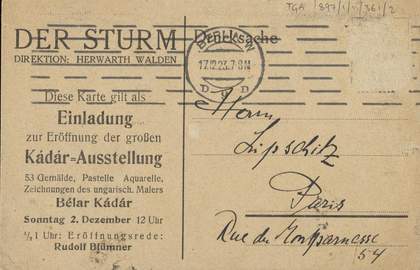 TGA /897/1/1/361/2
DER STURM
DIREKTION: HERWARTH WALDEN
Diese Karte gilt als
Einladung
zur Eröffnung der großen
Kádár=Ausstellung
53 Gemälde, Pastelle Aquarelle,
Zeichnungen des ungarisch. Malers
Bélar Kádár
Sonntag 2. Dezember 12 Uhr
½1 Uhr: Eröffnungsrede:
Rudolf Blümner
Drucksache
BERLIN
23. 7-8N
D 9 D
Herrn
Lipschitz
Paris
Rue du Montparnasse
54